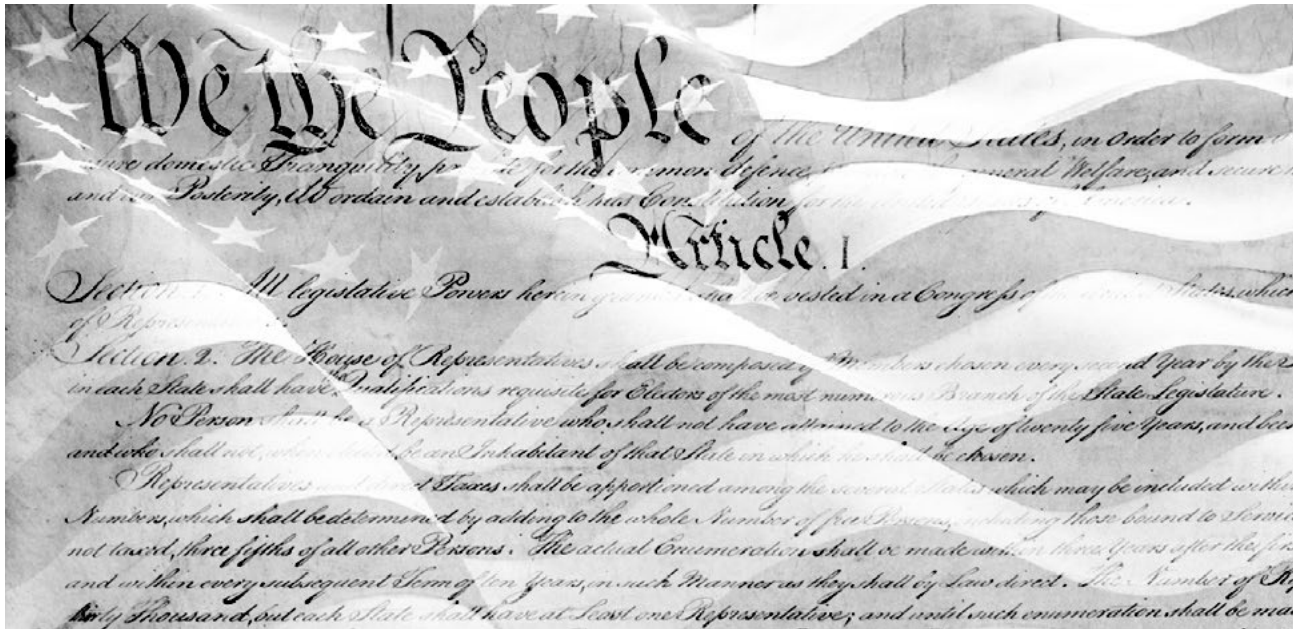 We the People of the United States, in Order to form
sure domestic Tranquility, provide for the common defence, general Welfare, and secure
and our Posterity, do ordain and establish this Constitution for the United States of America.
Article. I.
Section. 1. All legislative Powers herein granted shall be vested in a Congress of the United States, which
of Representatives.
Section. 2. The House of Representatives shall be composed of Members chosen every second Year by the
in each State shall have the Qualifications requisite for Electors of the most numerous Branch of the State Legislature.
No Person shall be a Representative who shall not have attained to the Age of twenty five Years, and been
and who shall not, when elected, be an Inhabitant of that State in which he shall be chosen.
Representatives and direct Taxes shall be apportioned among the several States which may be included within
Numbers, which shall be determined by adding to the whole Number of free Persons, including those bound to Servic
not taxed, three fifths of all other Persons. The actual Enumeration shall be made within three Years after the firs
and within every subsequent Term of ten Years, in such Manner as they shall by Law direct. The Number of Rep
thirty Thousand, but each State shall have at Least one Representative; and until such enumeration shall be mad